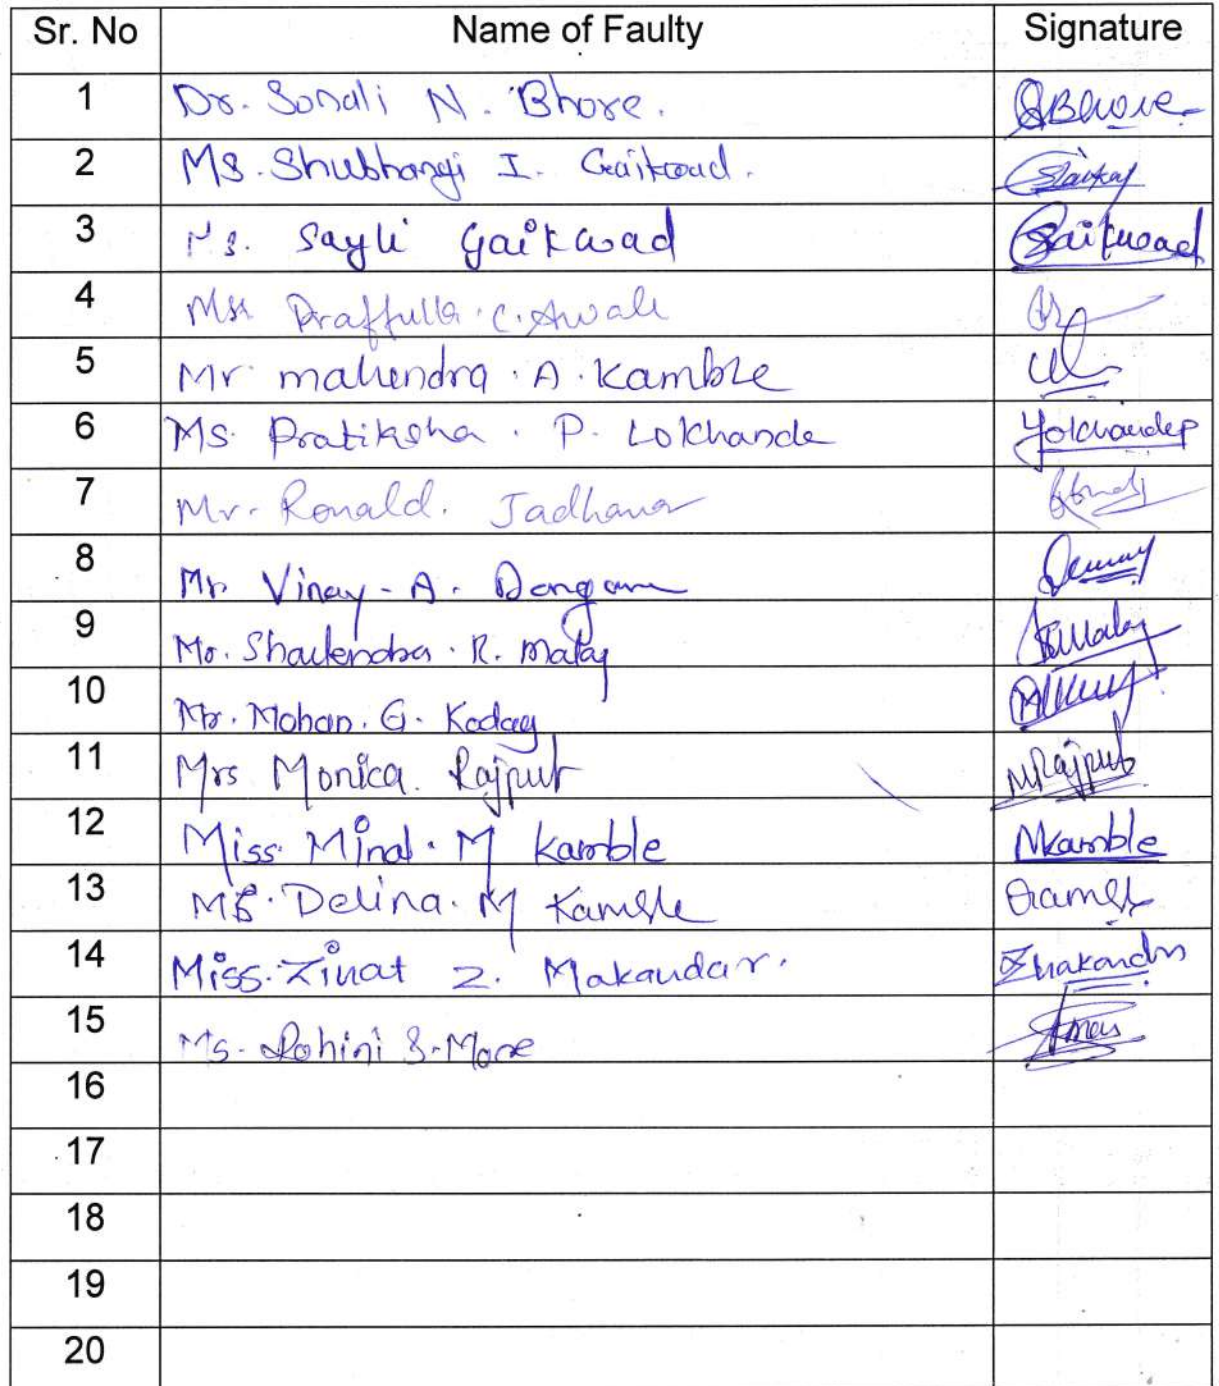 Sr. No Name of Faulty Signature
1 Dr. Sonali N. Bhore. SBhore
2 Ms. Shubhangi I. Gaikwad.
3 Ms. Sayli Gaikwad Gaikwad
4 Praffulla . C. Awale
5 Mr. mahendra . A. Kamble
6 Ms. Pratiksha . P. Lokhande Lokhandep
7 Mr. Ronald. Jadhanor
8 Mr. Vinay - A. Dongare
9 Mr. Shailendra . R. Malaj
10 Mr. Mohan. G. Kadag
11 Mrs Monica. Rajput MRajput
12 Miss. Minal. M Kamble Mkamble
13 Ms. Delina. M Kamble
14 Miss. Zinat Z. Makandar. Zmakandar
15 Ms. Rohini S. More
16
17
18
19
20